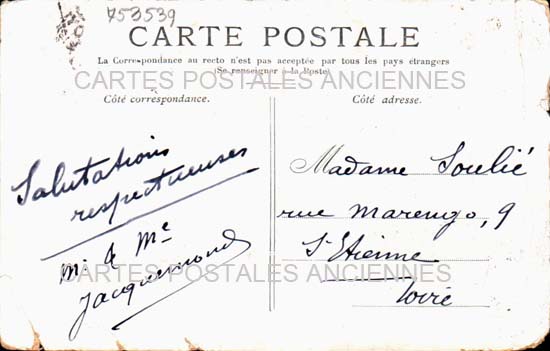 753539
CARTE POSTALE
La Correspondance au recto n'est pas acceptée par tous les pays étrangers
(Se renseigner à la Poste)
CARTES POSTALES ANCIENNES
Côté correspondance.
Côté adresse.
Salutations
respectueuses
M. & Me
Jacquemond
Madame Soulié
rue Marengo, 9
St Etienne
Loire
CARTES POSTALES ANCIENNES